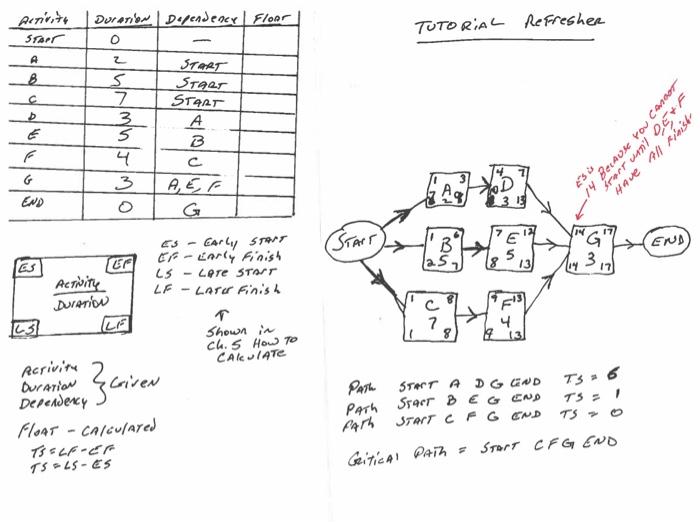 Activity Duration Dependency Float
START 0 —
A 2 START
B 5 START
C 7 START
D 3 A
E 5 B
F 4 C
G 3 A, E, F
END 0 G
ES EF
Activity
Duration
LS LF
ES - Early Start
EF - Early Finish
LS - Late Start
LF - Late Finish
↑
Shown in
Ch. 5 How to
Calculate
Activity
Duration
Dependency
} Given
Float - Calculated
TS = LF - EF
TS = LS - ES
TUTORIAL Refresher
ES is
14 Because you cannot
start until D, E, & F
have all finish
START
1 A 3
7 2 8
4 D 7
3 13
1 B 6
2 5 7
7 E 12
8 5 13
1 C 8
7
1 8
9 F 13
4
9 13
14 G 17
14 3 17
END
Path START A D G END TS = 6
Path START B E G END TS = 1
Path START C F G END TS = 0
Critical Path = START C F G END